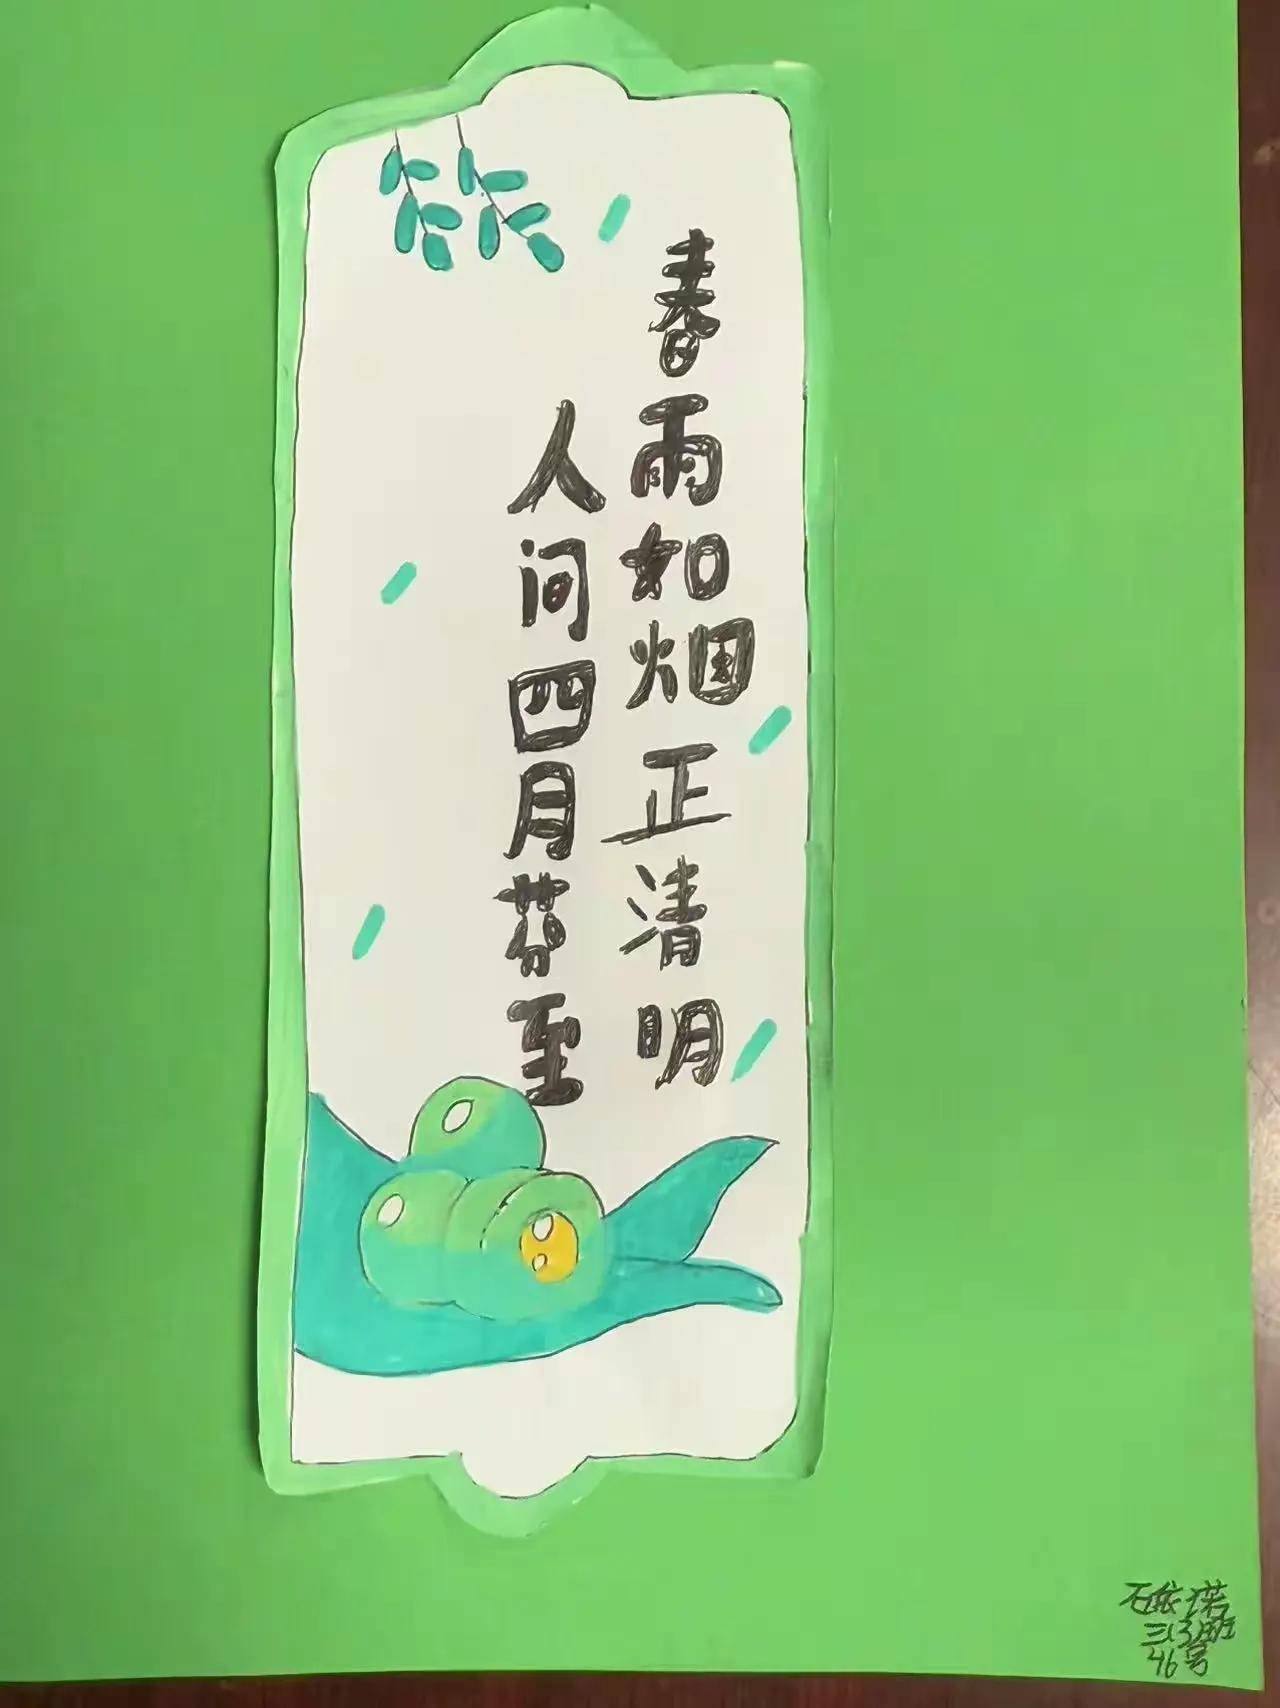 春雨如烟正清明
人间四月芬至
石依诺
三(3)班
46号